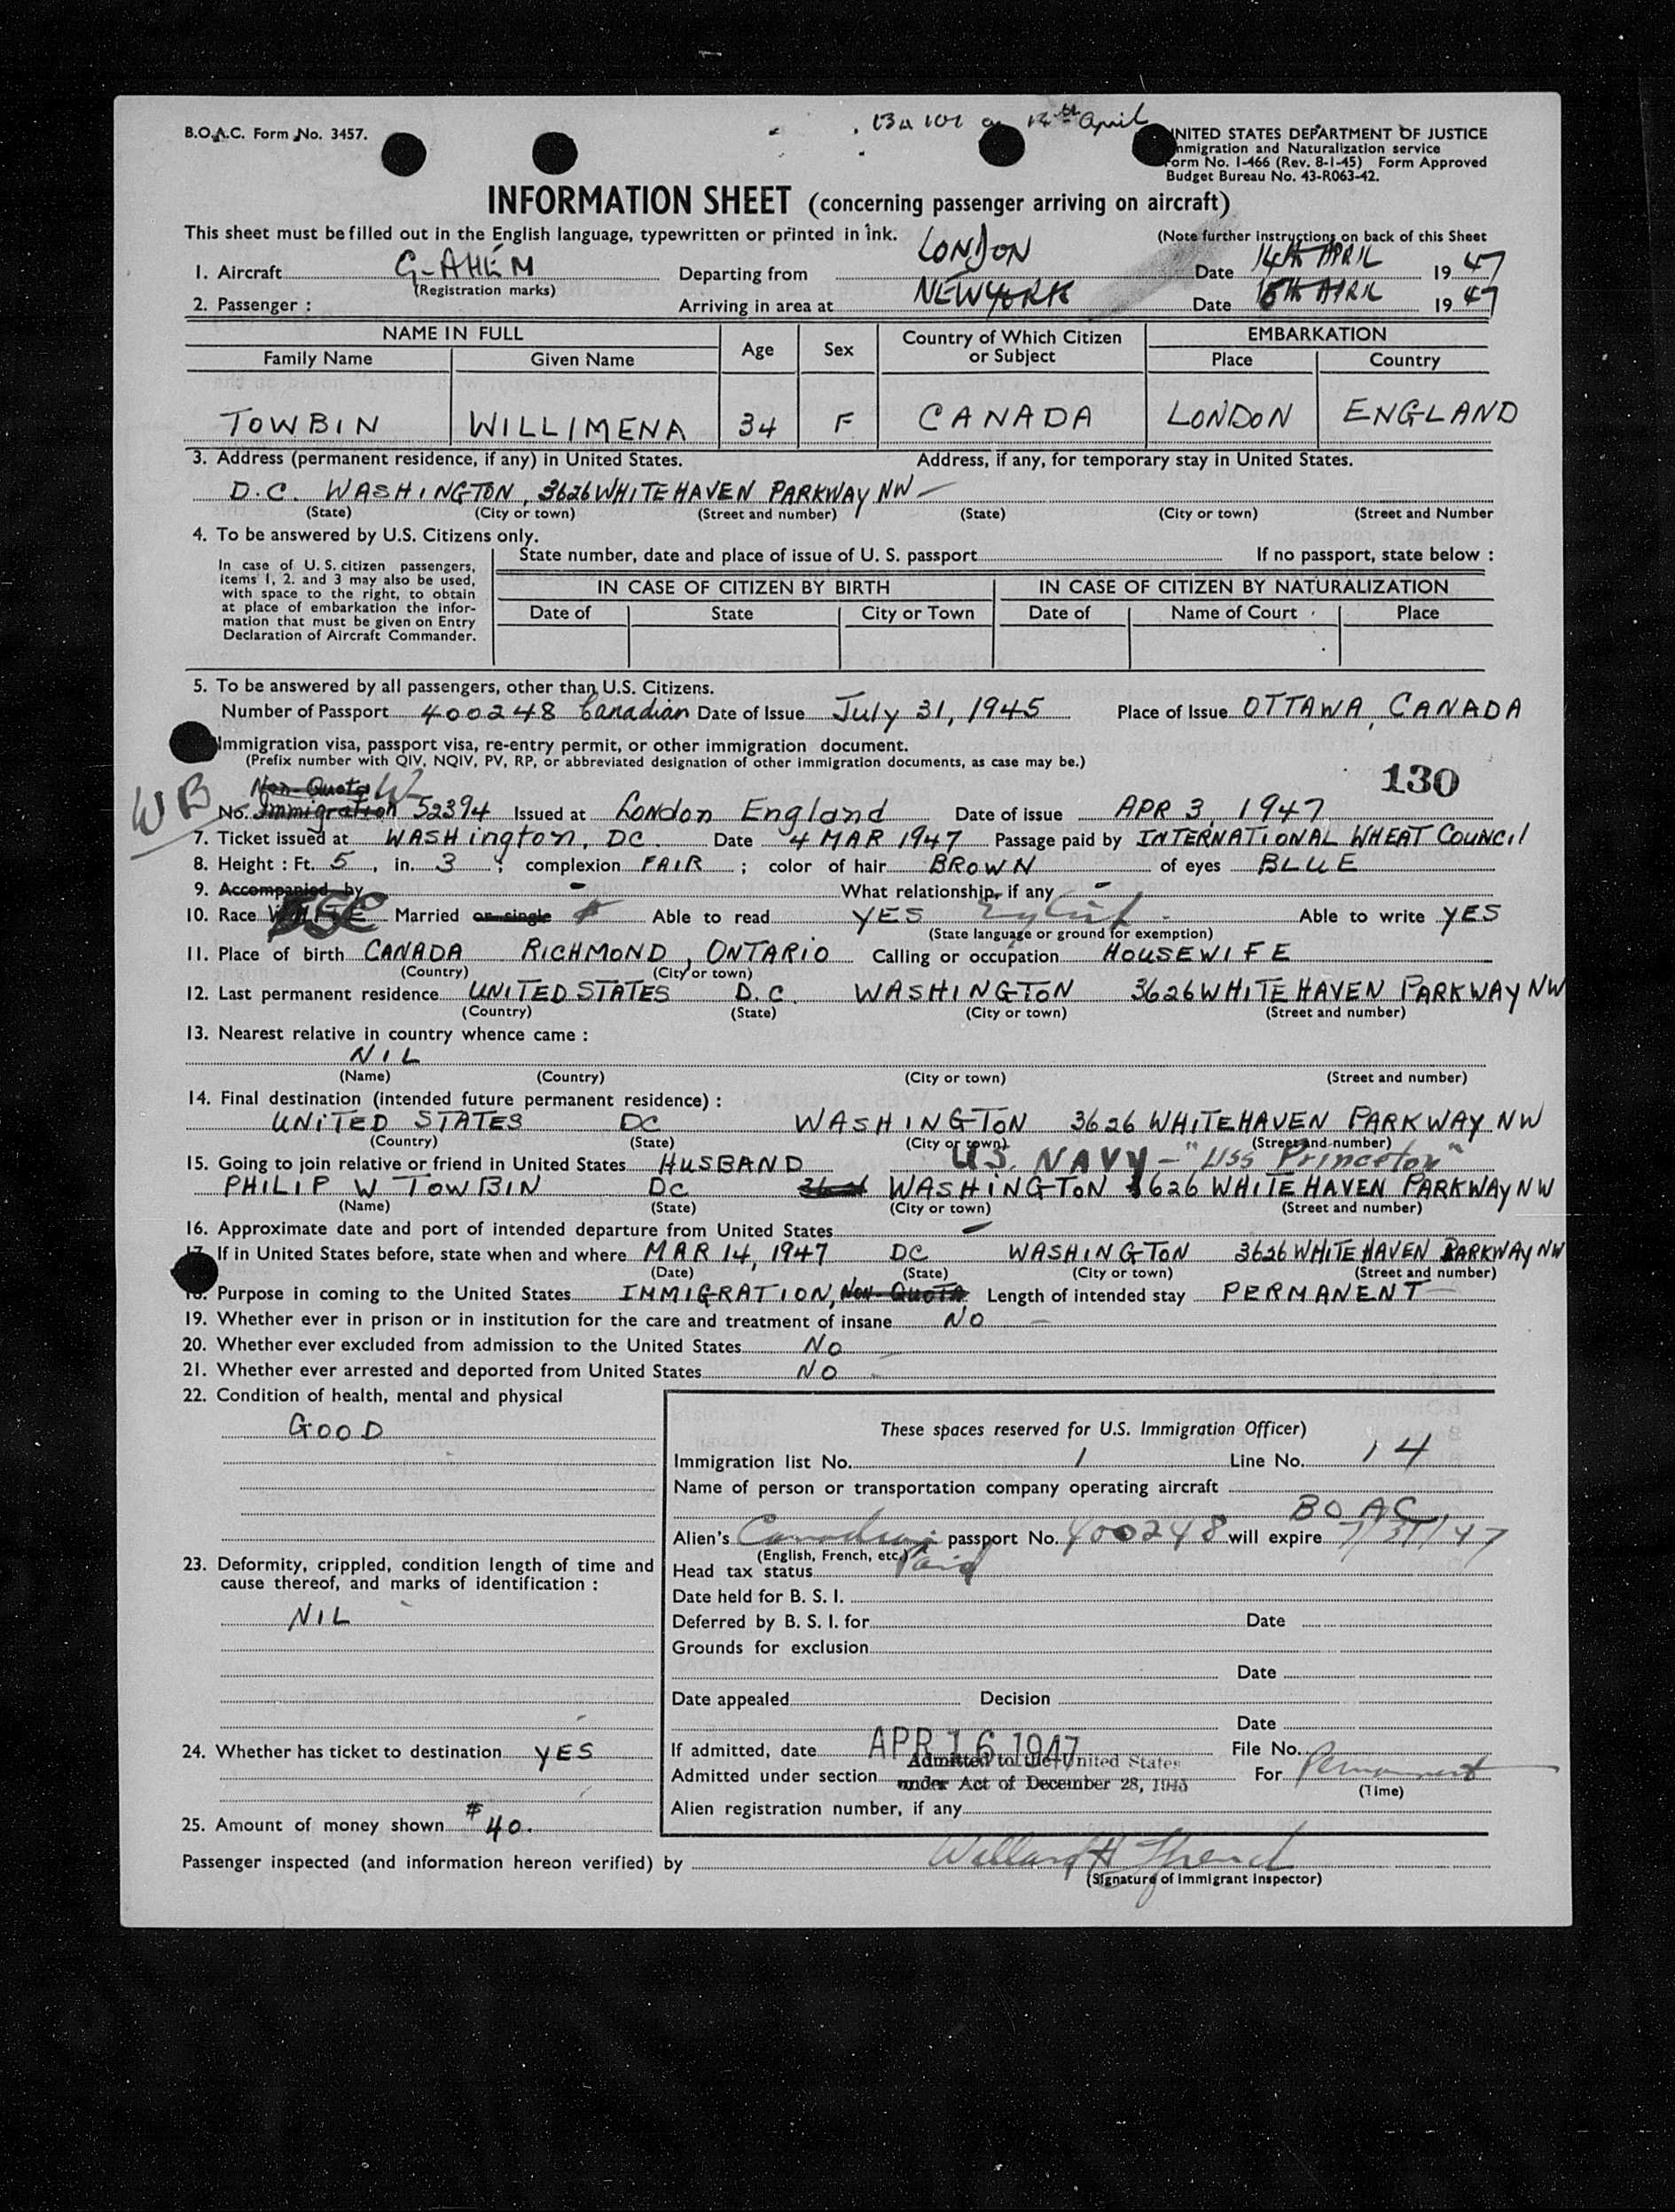 B.O.A.C. Form No. 3457.
April
UNITED STATES DEPARTMENT OF JUSTICE
Immigration and Naturalization service
Form No. I-466 (Rev. 8-1-45) Form Approved
Budget Bureau No. 43-R063-42.
INFORMATION SHEET (concerning passenger arriving on aircraft)
This sheet must be filled out in the English language, typewritten or printed in ink.
(Note further instructions on back of this Sheet
1. Aircraft G-AHEM Departing from LONDON Date 14TH APRIL 1947
(Registration marks)
2. Passenger : Arriving in area at NEW YORK Date 15TH APRIL 1947
NAME IN FULL Age Sex Country of Which Citizen or Subject EMBARKATION
Family Name Given Name Place Country
TOWBIN WILLIMENA 34 F CANADA LONDON ENGLAND
3. Address (permanent residence, if any) in United States. Address, if any, for temporary stay in United States.
D.C. WASHINGTON, 3626 WHITEHAVEN PARKWAY NW —
(State) (City or town) (Street and number) (State) (City or town) (Street and Number
4. To be answered by U.S. Citizens only.
State number, date and place of issue of U. S. passport If no passport, state below :
In case of U. S. citizen passengers,
items 1, 2. and 3 may also be used,
with space to the right, to obtain
at place of embarkation the infor-
mation that must be given on Entry
Declaration of Aircraft Commander.
IN CASE OF CITIZEN BY BIRTH IN CASE OF CITIZEN BY NATURALIZATION
Date of State City or Town Date of Name of Court Place
5. To be answered by all passengers, other than U.S. Citizens.
Number of Passport 400248 Canadian Date of Issue July 31, 1945 Place of Issue OTTAWA, CANADA
Immigration visa, passport visa, re-entry permit, or other immigration document.
(Prefix number with QIV, NQIV, PV, RP, or abbreviated designation of other immigration documents, as case may be.)
130
WB
Non-Quota
No. Immigration 52394 Issued at London England Date of issue APR 3, 1947
7. Ticket issued at WASHington, DC. Date 4 MAR 1947 Passage paid by INTERNATIONAL WHEAT COUNCIL
8. Height : Ft. 5, in. 3 ; complexion FAIR ; color of hair BROWN of eyes BLUE
9. Accompanied by - What relationship, if any -
10. Race WHITE Married or single Able to read YES English Able to write YES
(State language or ground for exemption)
11. Place of birth CANADA RICHMOND, ONTARIO Calling or occupation HOUSEWIFE
(Country) (City or town)
12. Last permanent residence UNITED STATES D.C. WASHINGTON 3626 WHITEHAVEN PARKWAY NW
(Country) (State) (City or town) (Street and number)
13. Nearest relative in country whence came :
NIL
(Name) (Country) (City or town) (Street and number)
14. Final destination (intended future permanent residence) :
UNITED STATES DC WASHINGTON 3626 WHITEHAVEN PARKWAY NW
(Country) (State) (City or town) (Street and number)
15. Going to join relative or friend in United States HUSBAND U.S. NAVY - "USS Princeton"
PHILIP W TOWBIN DC WASHINGTON 3626 WHITEHAVEN PARKWAY NW
(Name) (State) (City or town) (Street and number)
16. Approximate date and port of intended departure from United States -
17. If in United States before, state when and where MAR 14, 1947 DC WASHINGTON 3626 WHITEHAVEN PARKWAY NW
(Date) (State) (City or town) (Street and number)
18. Purpose in coming to the United States IMMIGRATION, NON-QUOTA Length of intended stay PERMANENT
19. Whether ever in prison or in institution for the care and treatment of insane NO
20. Whether ever excluded from admission to the United States NO
21. Whether ever arrested and deported from United States NO
22. Condition of health, mental and physical
GOOD
These spaces reserved for U.S. Immigration Officer)
Immigration list No. 1 Line No. 14
Name of person or transportation company operating aircraft
BOAC
Alien's Canadian passport No. 400248 will expire 7/31/47
(English, French, etc.)
23. Deformity, crippled, condition length of time and
cause thereof, and marks of identification :
NIL
Head tax status Paid
Date held for B. S. I.
Deferred by B. S. I. for Date
Grounds for exclusion
Date
Date appealed Decision
Date
24. Whether has ticket to destination YES
If admitted, date APR 16 1947 File No.
Admitted to the United States
Admitted under section under Act of December 28, 1945 For Permanent
(Time)
Alien registration number, if any
25. Amount of money shown $40.
Passenger inspected (and information hereon verified) by
(Signature of Immigrant Inspector)